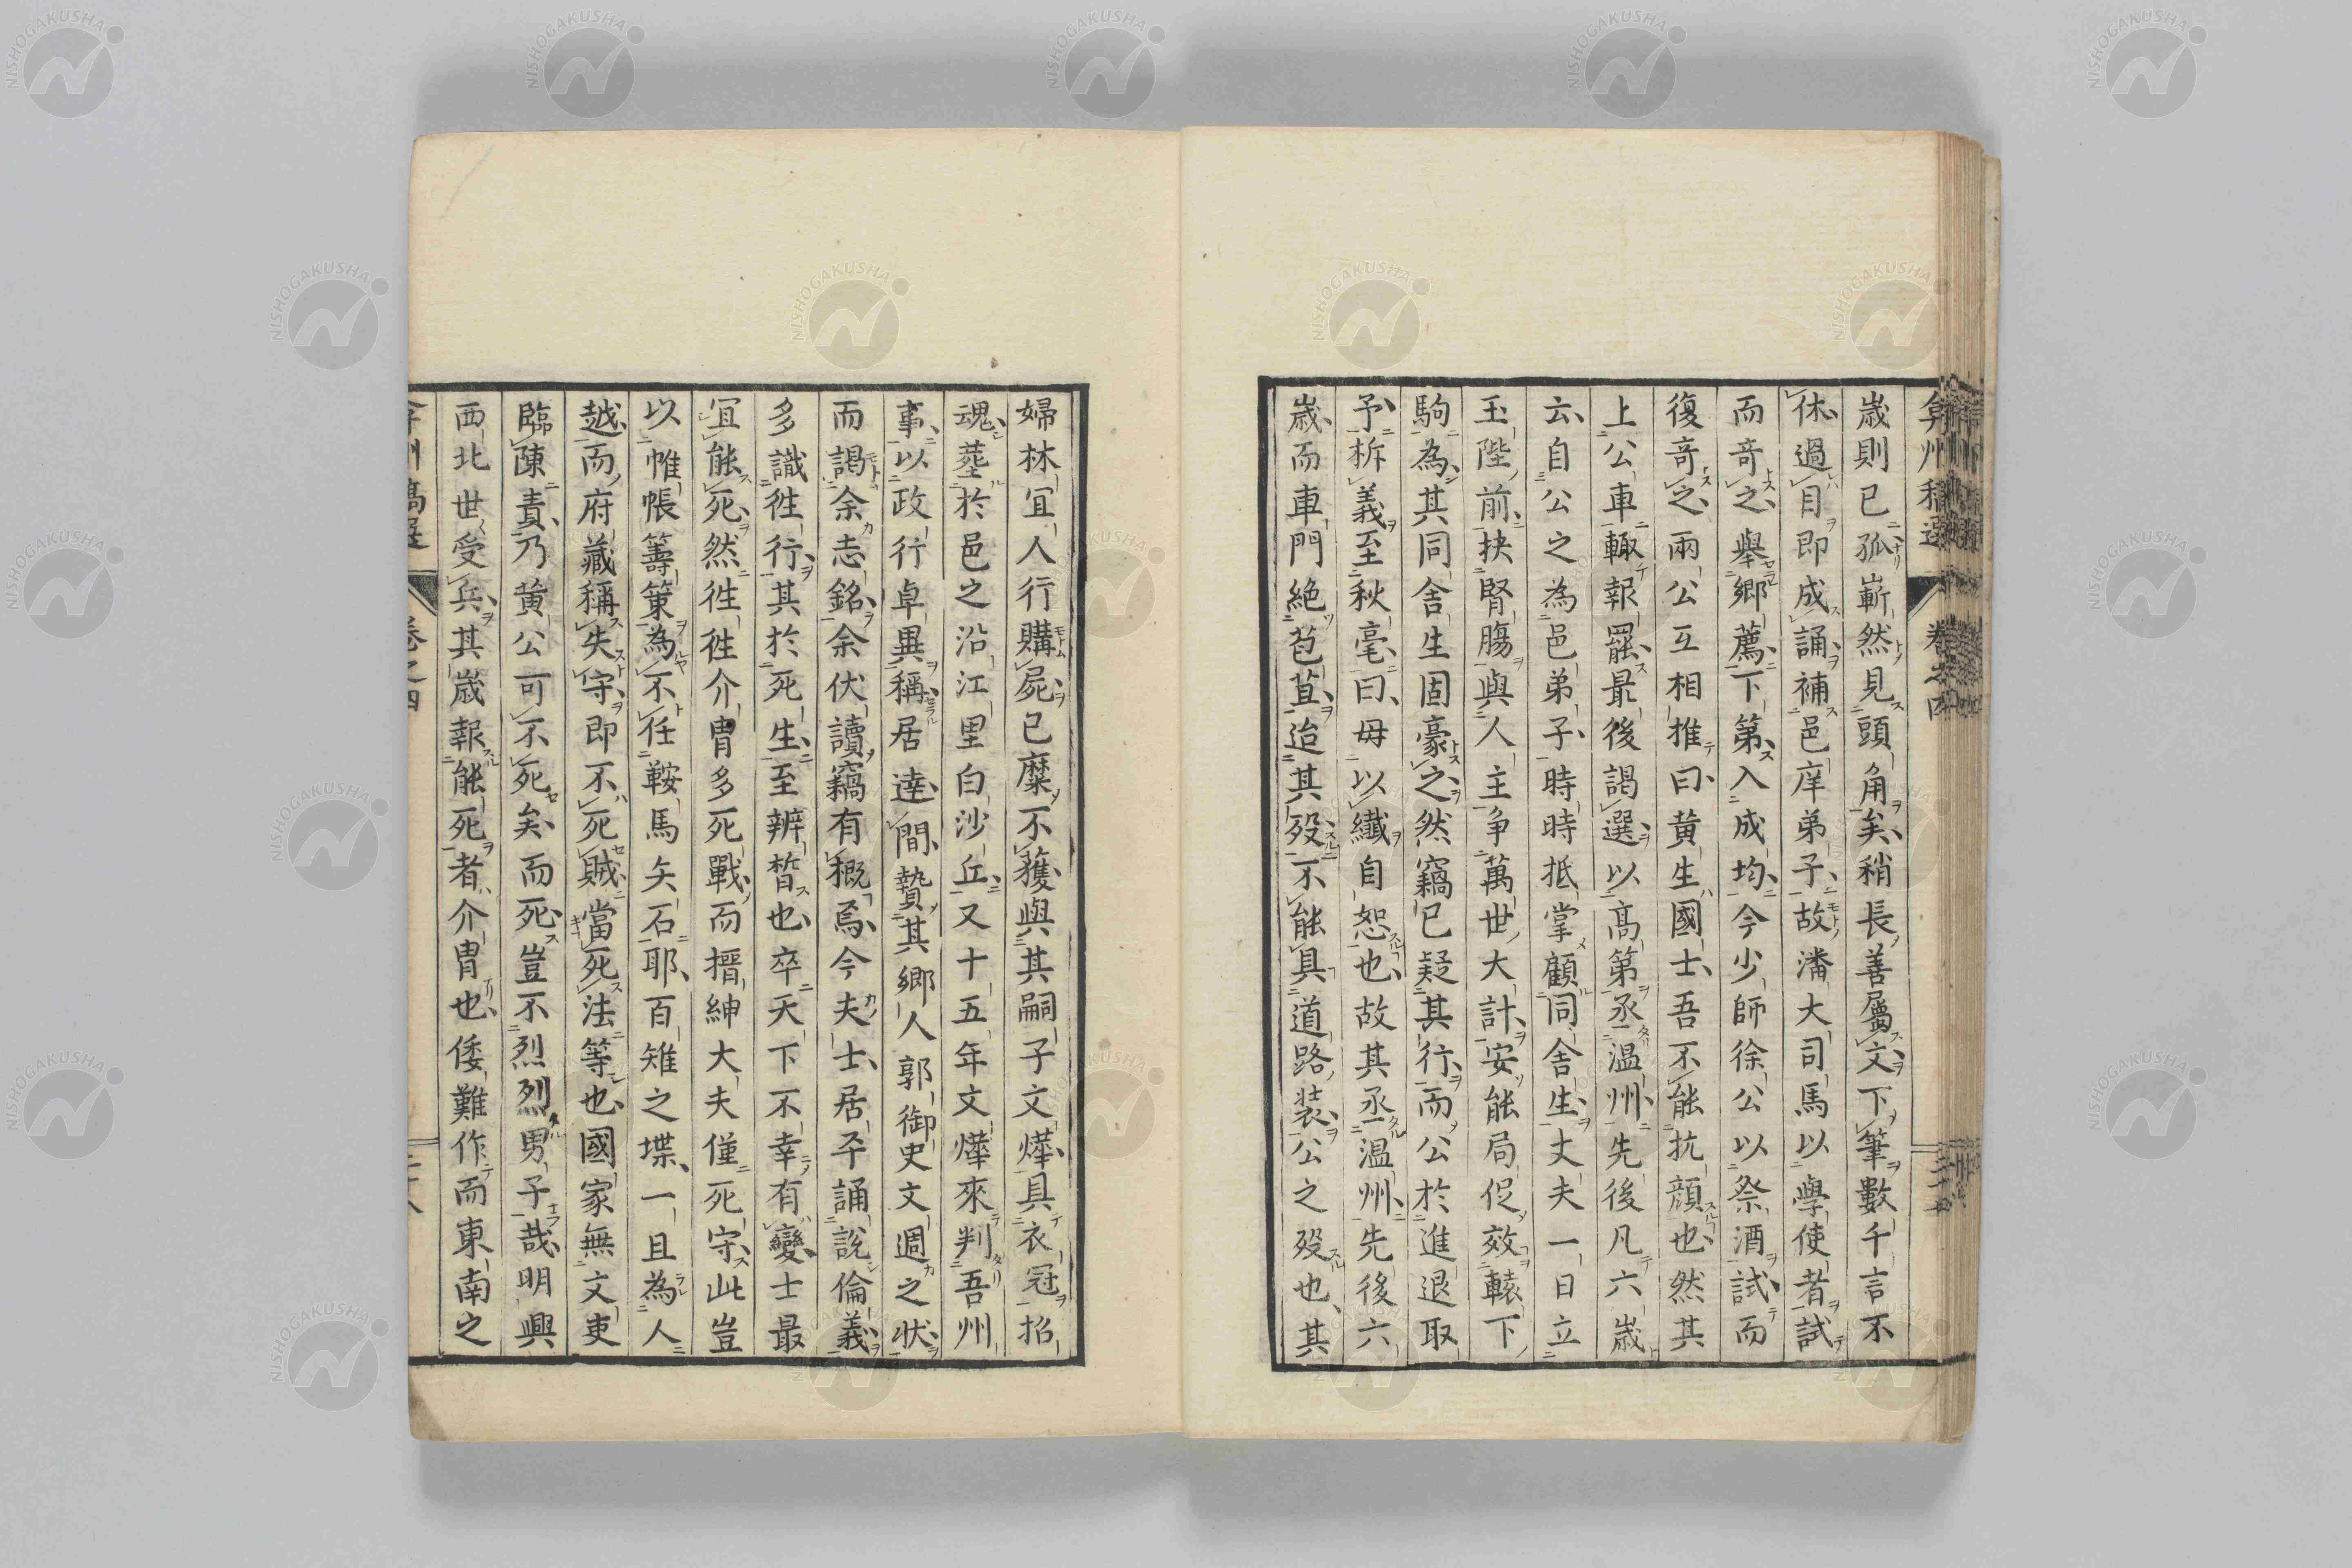 弇州稿選 卷之四
歳則已孤嶄然見頭角矣稍長善屬文下筆數千言不
休過目即成誦補邑庠弟子故潘大司馬以學使者試
而奇之舉郷薦下第入成均今少師徐公以祭酒試而
復奇之兩公互相推曰黄生國士吾不能抗顔也然其
上公車輙報罷最後謁選以高第丞温州先後凡六歳
云自公之為邑弟子時時抵掌顧同舎生丈夫一日立
玉陛前抉腎膓與人主争萬世大計安能局促效轅下
駒為其同舎生固豪之然竊已疑其行而公於進退取
予柝義至秋毫曰毋以纎自恕也故其丞温州先後六
歳而車門絶苞苴迨其歿不能具道路装公之歿也其
婦林宜人行購屍已糜不獲與其嗣子文燁具衣冠招
魂塟於邑之沿江里白沙丘又十五年文燁來判吾州
事以政行卓異稱居逹間贄其郷人郭御史文週之状
而謁余志銘余伏讀竊有槪焉今夫士居平誦說倫義
多識徃行其於死生至辨晢也卒天下不幸有變士最
宜能死然徃徃介冑多死戰而搢紳大夫僅死守此豈
以帷帳籌策為不任鞍馬矢石耶百雉之堞一旦為人
越而府藏稱失守即不死賊當死法等也國家無文吏
臨陳責乃黄公可不死矣而死豈不烈烈男子哉明興
西北世受兵其歳報能死者介冑也倭難作而東南之
弇州稿選 卷之四 二十八
NISHOGAKUSHA